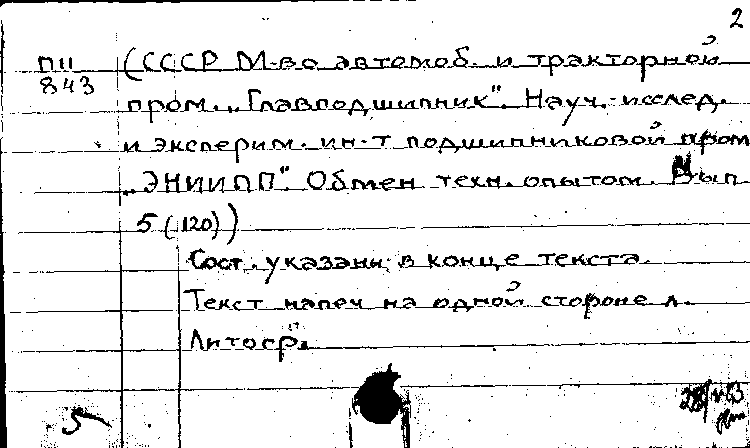 2
ПП (СССР М-во автомоб. и тракторной
843
пром. „Главподшипник". Науч.-исслед.
и эксперим. ин-т подшипниковой пром
„ЭНИИПП". Обмен техн. опытом. Вып
5 (120))
Сост. указаны в конце текста.
Текст напеч на одной стороне л.
Литогр.
5